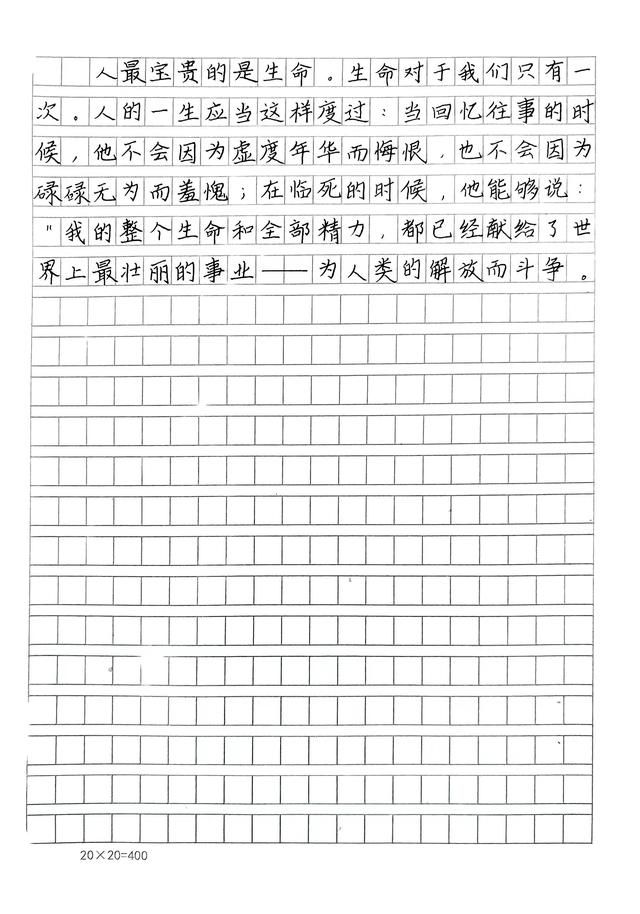 人最宝贵的是生命。生命对于我们只有一
次。人的一生应当这样度过：当回忆往事的时
候，他不会因为虚度年华而悔恨，也不会因为
碌碌无为而羞愧；在临死的时候，他能够说：
"我的整个生命和全部精力，都已经献给了世
界上最壮丽的事业——为人类的解放而斗争。
20×20=400